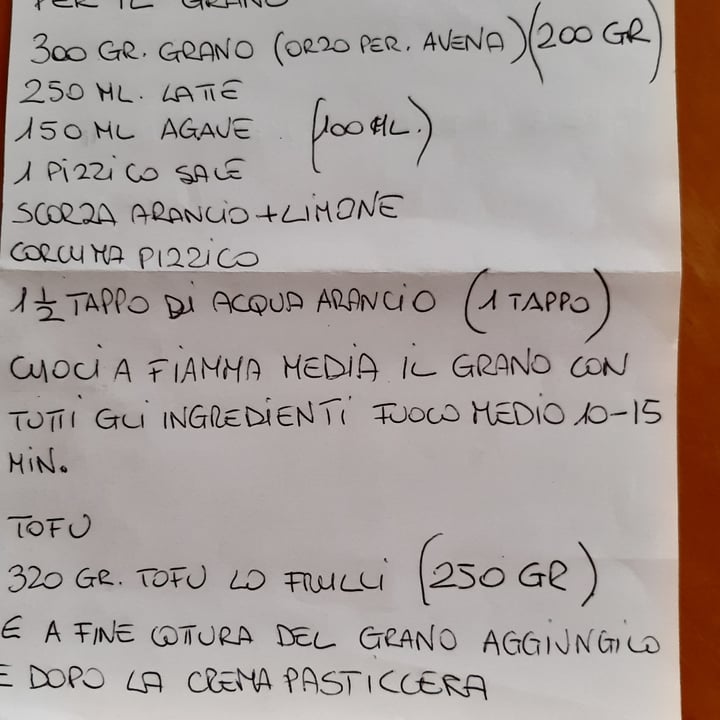 PER IL GRANO
300 GR. GRANO (ORZO PER. AVENA) (200 GR)
250 ML. LATTE
150 ML AGAVE (100 ML.)
1 PIZZICO SALE
SCORZA ARANCIO + LIMONE
CORCUMA PIZZICO
1 1/2 TAPPO DI ACQUA ARANCIO (1 TAPPO)
CUOCI A FIAMMA MEDIA IL GRANO CON
TUTTI GLI INGREDIENTI FUOCO MEDIO 10-15
MIN.
TOFU
320 GR. TOFU LO FRULLI (250 GR)
E A FINE COTURA DEL GRANO AGGIUNGILO
E DOPO LA CREMA PASTICCERA